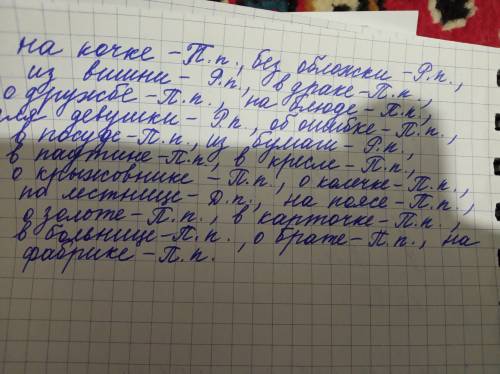 на кочке - П.п., без обложки - Р.п.,
из вишни - Р.п., в драке - П.п.,
о дружбе - П.п., на блюде - П.п.,
для девушки - Р.п., об ошибке - П.п.,
в посуде - П.п., из бумаги - Р.п.,
в паутине - П.п., в кресле - П.п.,
о крыжовнике - П.п., о колечке - П.п.,
по лестнице - Д.п., на поясе - П.п.,
о золоте - П.п., в карточке - П.п.,
в больнице - П.п., о брате - П.п., на
фабрике - П.п.